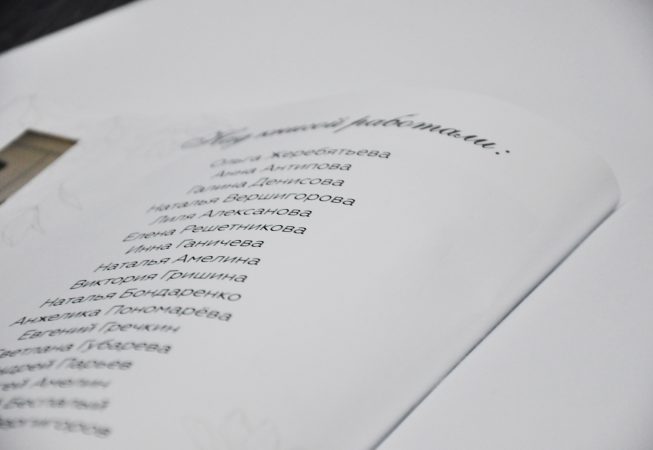 Над книгой работали:
Ольга Жеребятьева
Анна Антипова
Галина Денисова
Наталья Вершигорова
Лиля Алексанова
Елена Решетникова
Инна Ганичева
Наталья Амелина
Виктория Гришина
Наталья Бондаренко
Анжелика Пономарёва
Евгений Гречкин
Светлана Губарева
Парьев
Амелин
Беспалый